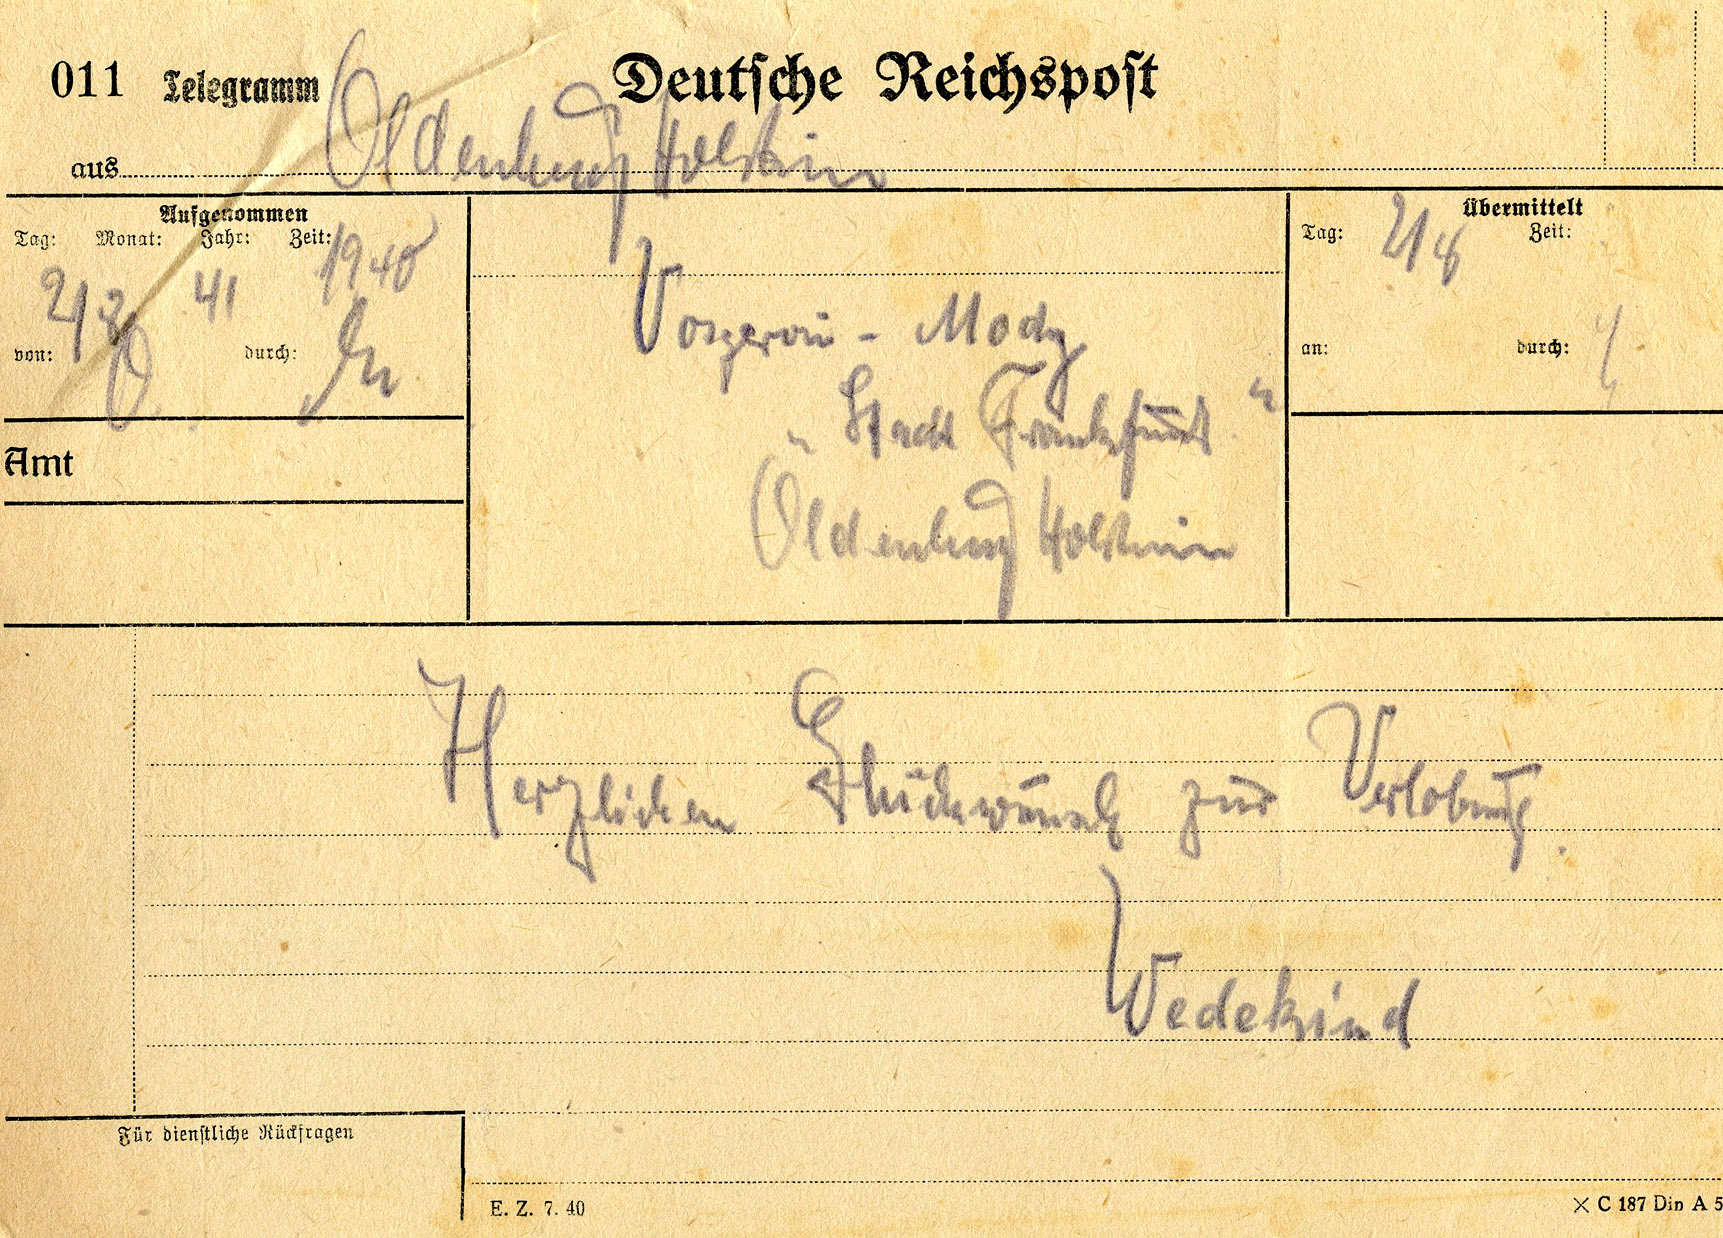 011 Telegramm Deutsche Reichspost
aus Oldenburg Holstein
Aufgenommen
Tag: Monat: Jahr: Zeit:
21 8 41 1940
von: O durch:
Übermittelt
Tag: 21 8 Zeit:
an: durch:
Amt
Vosgerau - Mody
"Stadt Frankfurt"
Oldenburg Holstein
Herzlichen Glückwunsch zur Verlobung.
Wedekind
Für dienstliche Rückfragen
E. Z. 7. 40
× C 187 Din A 5